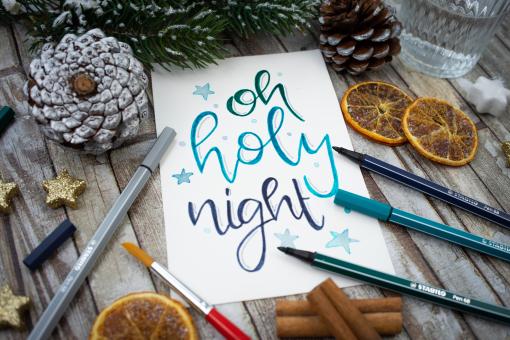 oh
holy
night
STABILO Pen 68
STABILO
STABILO Pen 68